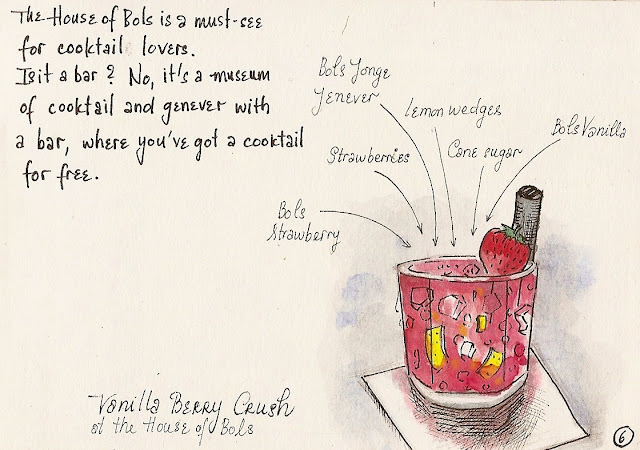 The House of Bols is a must-see
for cocktail lovers.
Is it a bar? No, it's a museum
of cocktail and genever with
a bar, where you've got a cocktail
for free.
Bols Jonge
Jenever
Lemon wedges
Bols Vanilla
Strawberries
Cane sugar
Bols
Strawberry
Vanilla Berry Crush
at the House of Bols
6